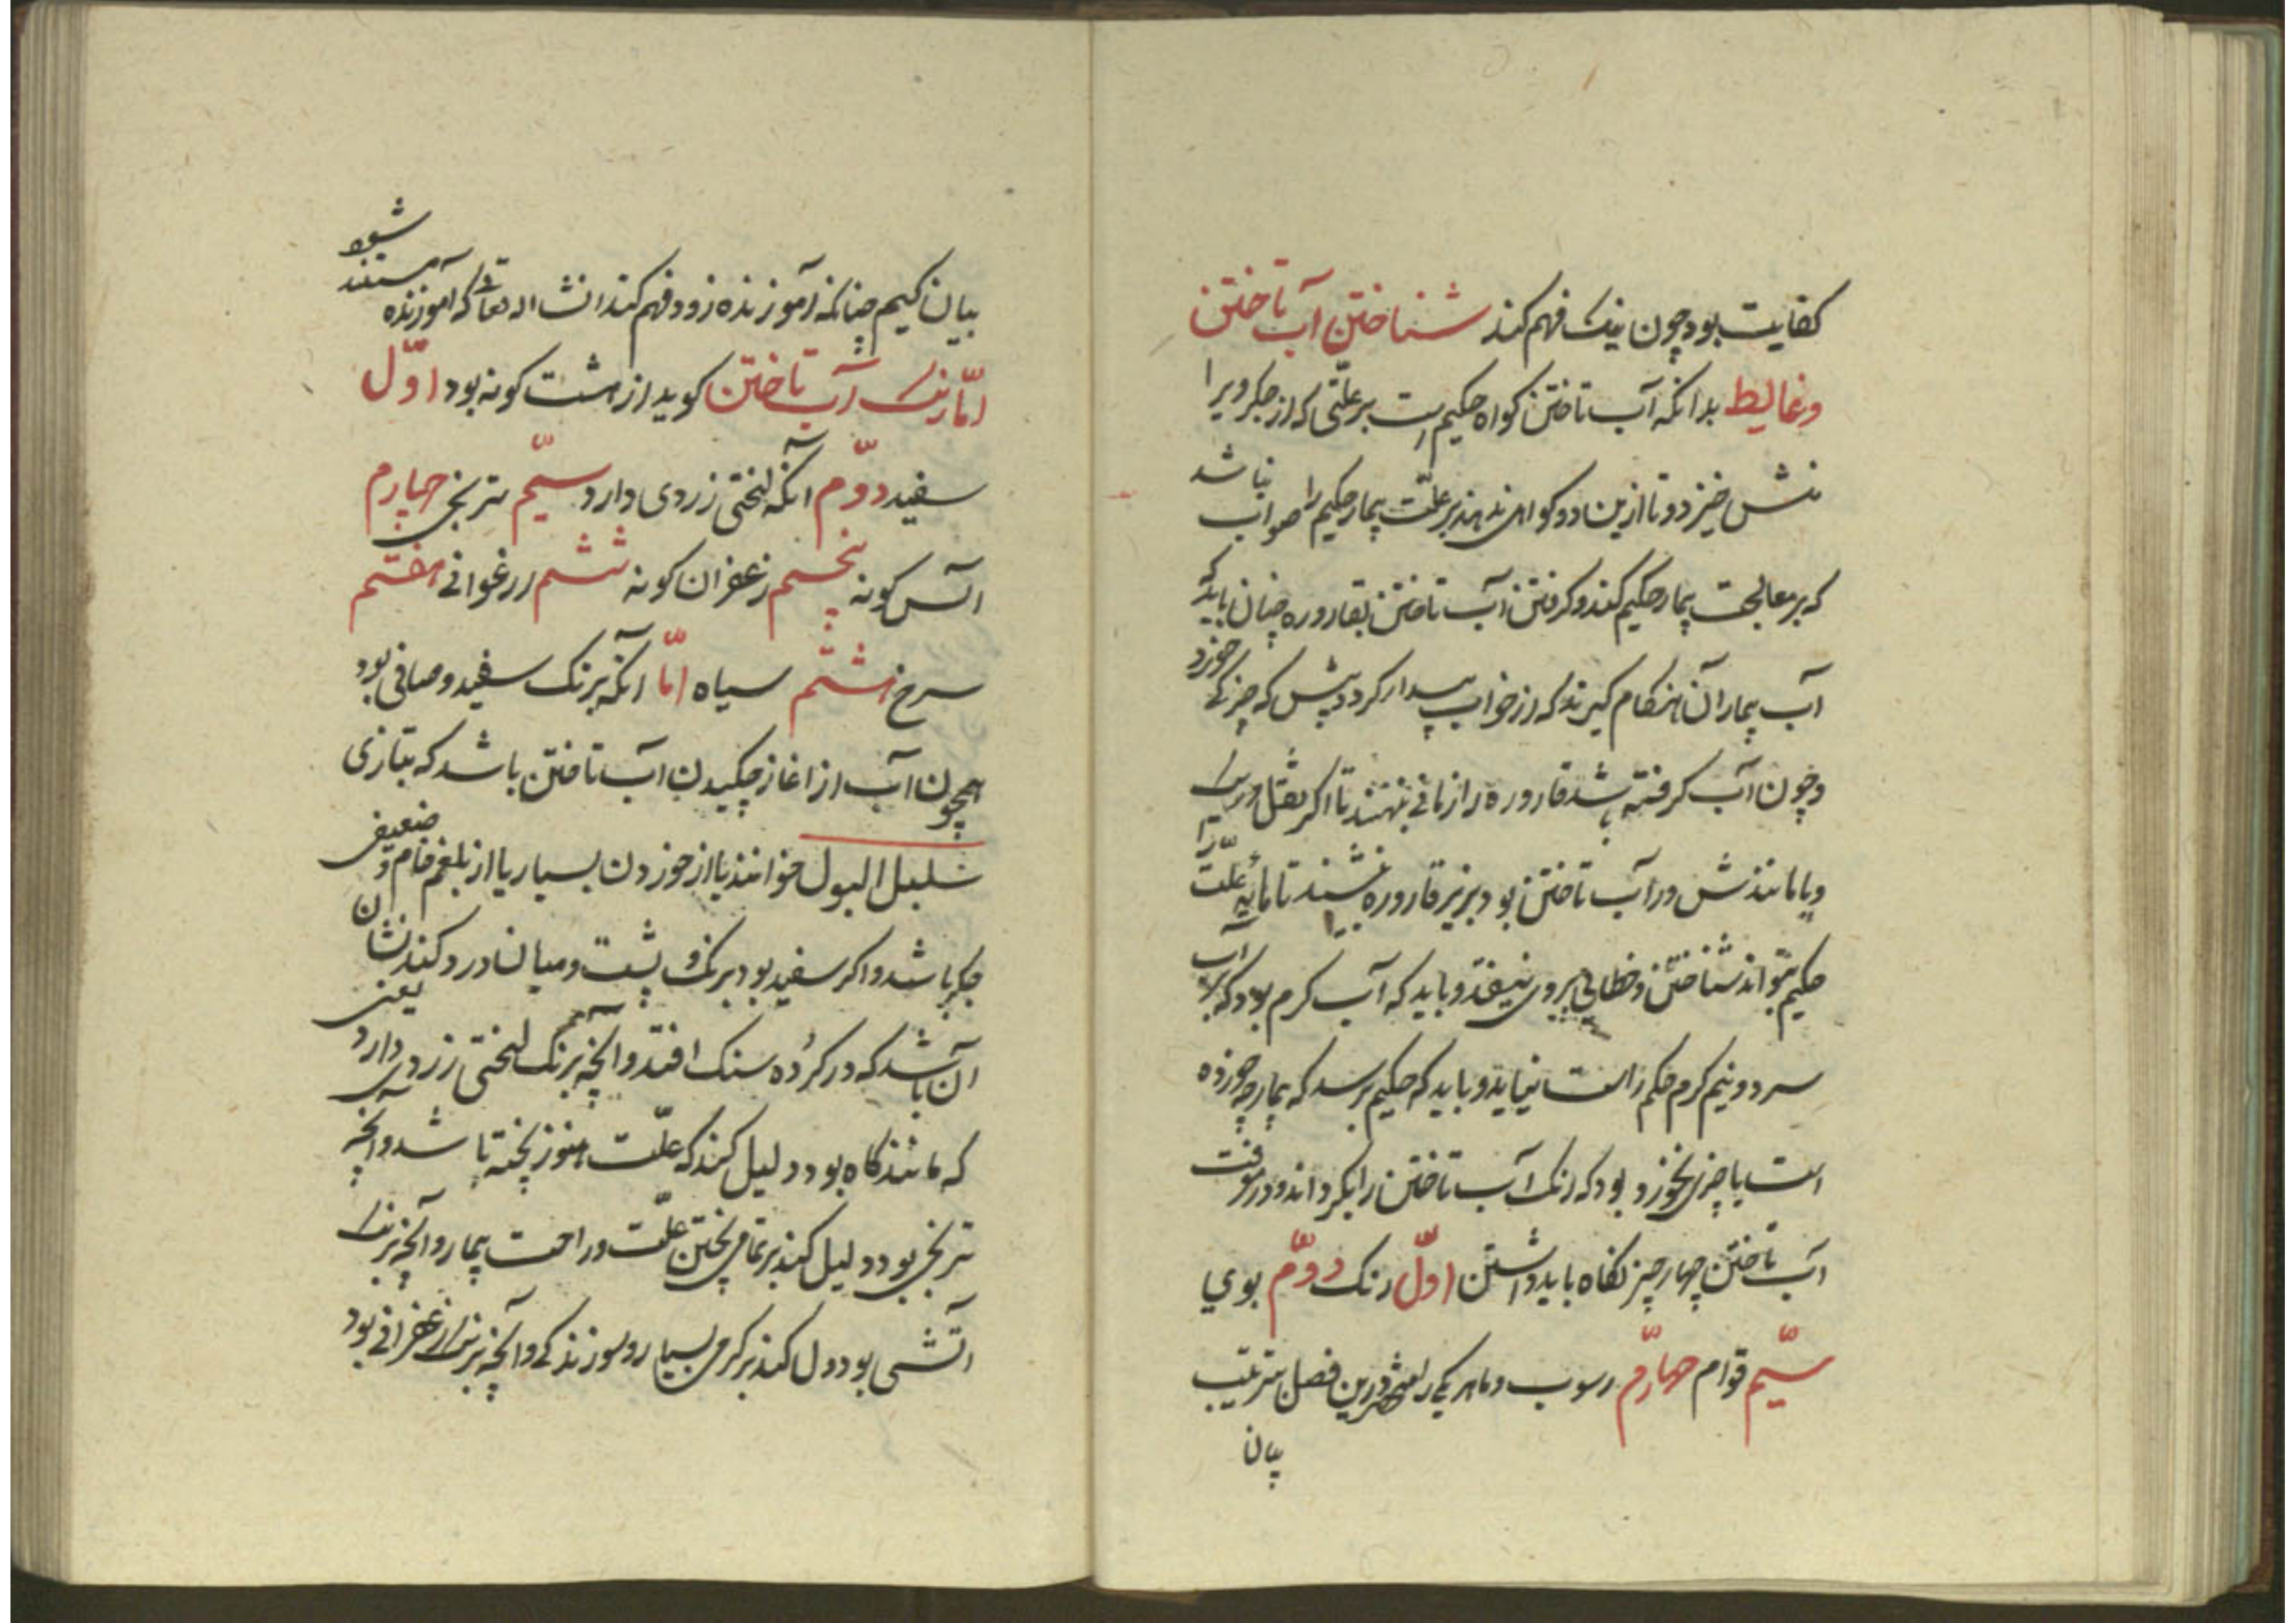 کفایت بود چون نیک فهم کند شناختن آب تاختن
و غالیط بدانکه آب تاختن کواه حکیم است بر علتی که از جکر ویرا
خیزد و تا ازین دو کواهی ندهند بر علت بیمار حکیم را صواب نباشد
که بر معالجت بیمار حکیم کند و کرفتن آب تاختن بقاروره چنان باید که
آب بیمار آن هنکام کیرند که از خواب بیدار کردد پیش که چیزکی خورد
و چون آب کرفته باشد قاروره را زمانی بنهند تا اکر ثقل و ریک
و یا مانندش در آب تاختن بود بزیر قاروره بنشیند تا مایهٔ علت را
حکیم بتواند شناختن و خطایی بروی نیفتد و باید که آب کرم بود که بر آب
سرد و نیم کرم حکم راست نیاید و باید که حکیم برسد که بیمار چه خورده
است یا چیزی بخورد بود که رنک آب تاختن را بکرداند و در معرفت
آب تاختن چهار چیز نکاه باید داشتن اول رنک دوم بوی
سیم قوام چهارم رسوب و ما هر یکی را درین فصل بترتیب
بیان
بیان کنیم چنانکه آموزنده زود فهم کند انشا اله تعا که آموزنده مستفید شود
اما رنک آب تاختن کوید از هشت کونه بود اول
سفید دوم آنکه لختی زردی دارد سیم ترنجی چهارم
آتش کونه پنجم زعفران کونه ششم ارغوانی هفتم
سرخ هشتم سیاه اما آنکه برنک سفید و صافی بود
همچون آب از اغاز چکیدن آب تاختن باشد که بتازی
سلبل البول خوانند یا از خوردن بسیار یا از بلغم خام و ضعیفی
جکر باشد و اکر سفید بود برنک و پشت و میان درد کند نشان
آن باشد که در کرده سنک افتد و آنچه برنک لختی زردی دارد یعنی
که مانند کاه بود دلیل کند که علت هنوز پخته نا شد و آنچه
ترنجی بود دلیل کند بر تمامی پختن علت و راحت بیمار و آنچه برنک
آتشی بود دل کند بر کرمی بسیار و سوزندکی و آنچه برنک زعفرانی بود